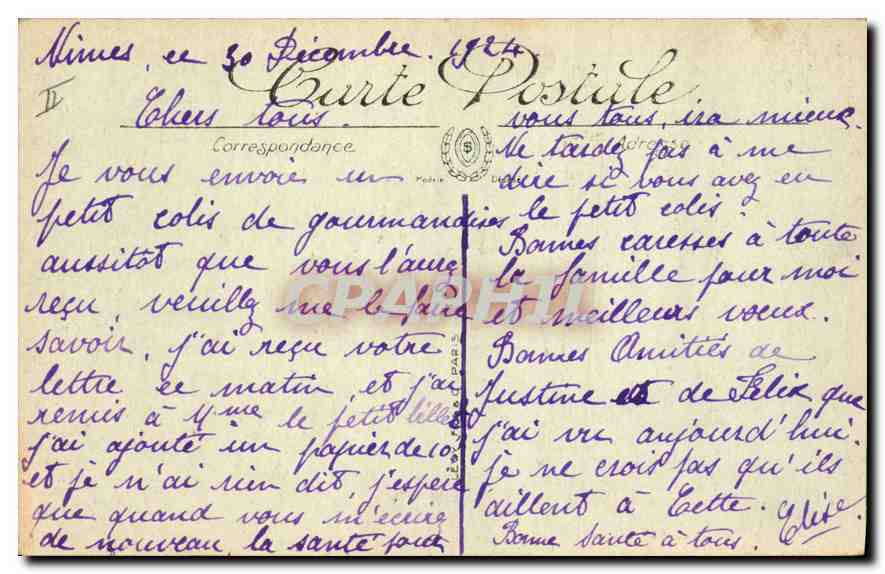 Nimes, ce 30 Décembre 1924.
Carte Postale
II
Chers tous.
Correspondance
Je vous envoie un
petit colis de gourmandises
aussitôt que vous l'aurez
reçu, veuillez me le faire
savoir, j'ai reçu votre
lettre ce matin et j'ai
remis à Mme le petit billet
j'ai ajouté un papier de 10
et je n'ai rien dit j'espère
que quand vous m'écrirez
de nouveau, la santé pour
vous tous, ira mieux.
Adresse
Ne tardez pas à me
dire si vous avez eu
le petit colis.
Bonnes caresses à toute
la famille pour moi
et meilleurs voeux.
Bonnes Amitiés de
Justine et de Félix que
j'ai vu aujourd'hui.
je ne crois pas qu'ils
aillent à Cette. Elise.
Bonne santé à tous.
CPAPHIL
PARIS